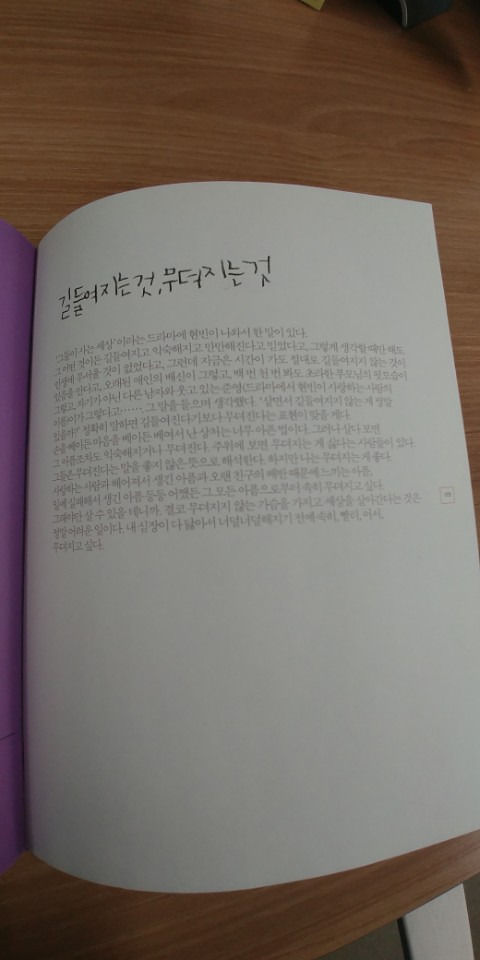 길들여지는 것, 무뎌지는 것
'그들이 사는 세상'이라는 드라마에 현빈이 나와서 한 말이 있다.
그 어떤 것이든 길들여지고 익숙해지고 만만해진다고 믿었다고, 그렇게 생각할 때만 해도
인생에 무서울 것이 없었다고, 그런데 지금은 시간이 가도 절대로 길들여지지 않는 것이
있음을 안다고, 오래된 애인의 배신이 그렇고, 백 번 천 번 봐도 초라한 부모님의 뒷모습이
그렇고, 자기가 아닌 다른 남자와 웃고 있는 준영(드라마에서 현빈이 사랑하는 사람의
이름)이가 그렇다고……. 그 말을 들으며 생각했다. '살면서 길들여지지 않는 게 정말
있을까?' 정확히 말하면 길들여진다기보다 무뎌진다는 표현이 맞을 게다.
손을 베이든 마음을 베이든 베여서 난 상처는 너무 아픈 법이다. 그러나 살다 보면
그 아픔조차도 익숙해지거나 무뎌진다. 주위에 보면 무뎌지는 게 싫다는 사람들이 있다.
그들은 무뎌진다는 말을 좋지 않은 뜻으로 해석한다. 하지만 나는 무뎌지는 게 좋다.
사랑하는 사람과 헤어져서 생긴 아픔과 오랜 친구의 배반 때문에 느끼는 아픔,
일에 실패해서 생긴 아픔 등등 어쨌든 그 모든 아픔으로부터 속히 무뎌지고 싶다.
그래야만 살 수 있을 테니까. 결코 무뎌지지 않는 가슴을 가지고 세상을 살아간다는 것은
정말 어려운 일이다. 내 심장이 다 닳아서 너덜너덜해지기 전에 속히, 빨리, 어서,
무뎌지고 싶다.